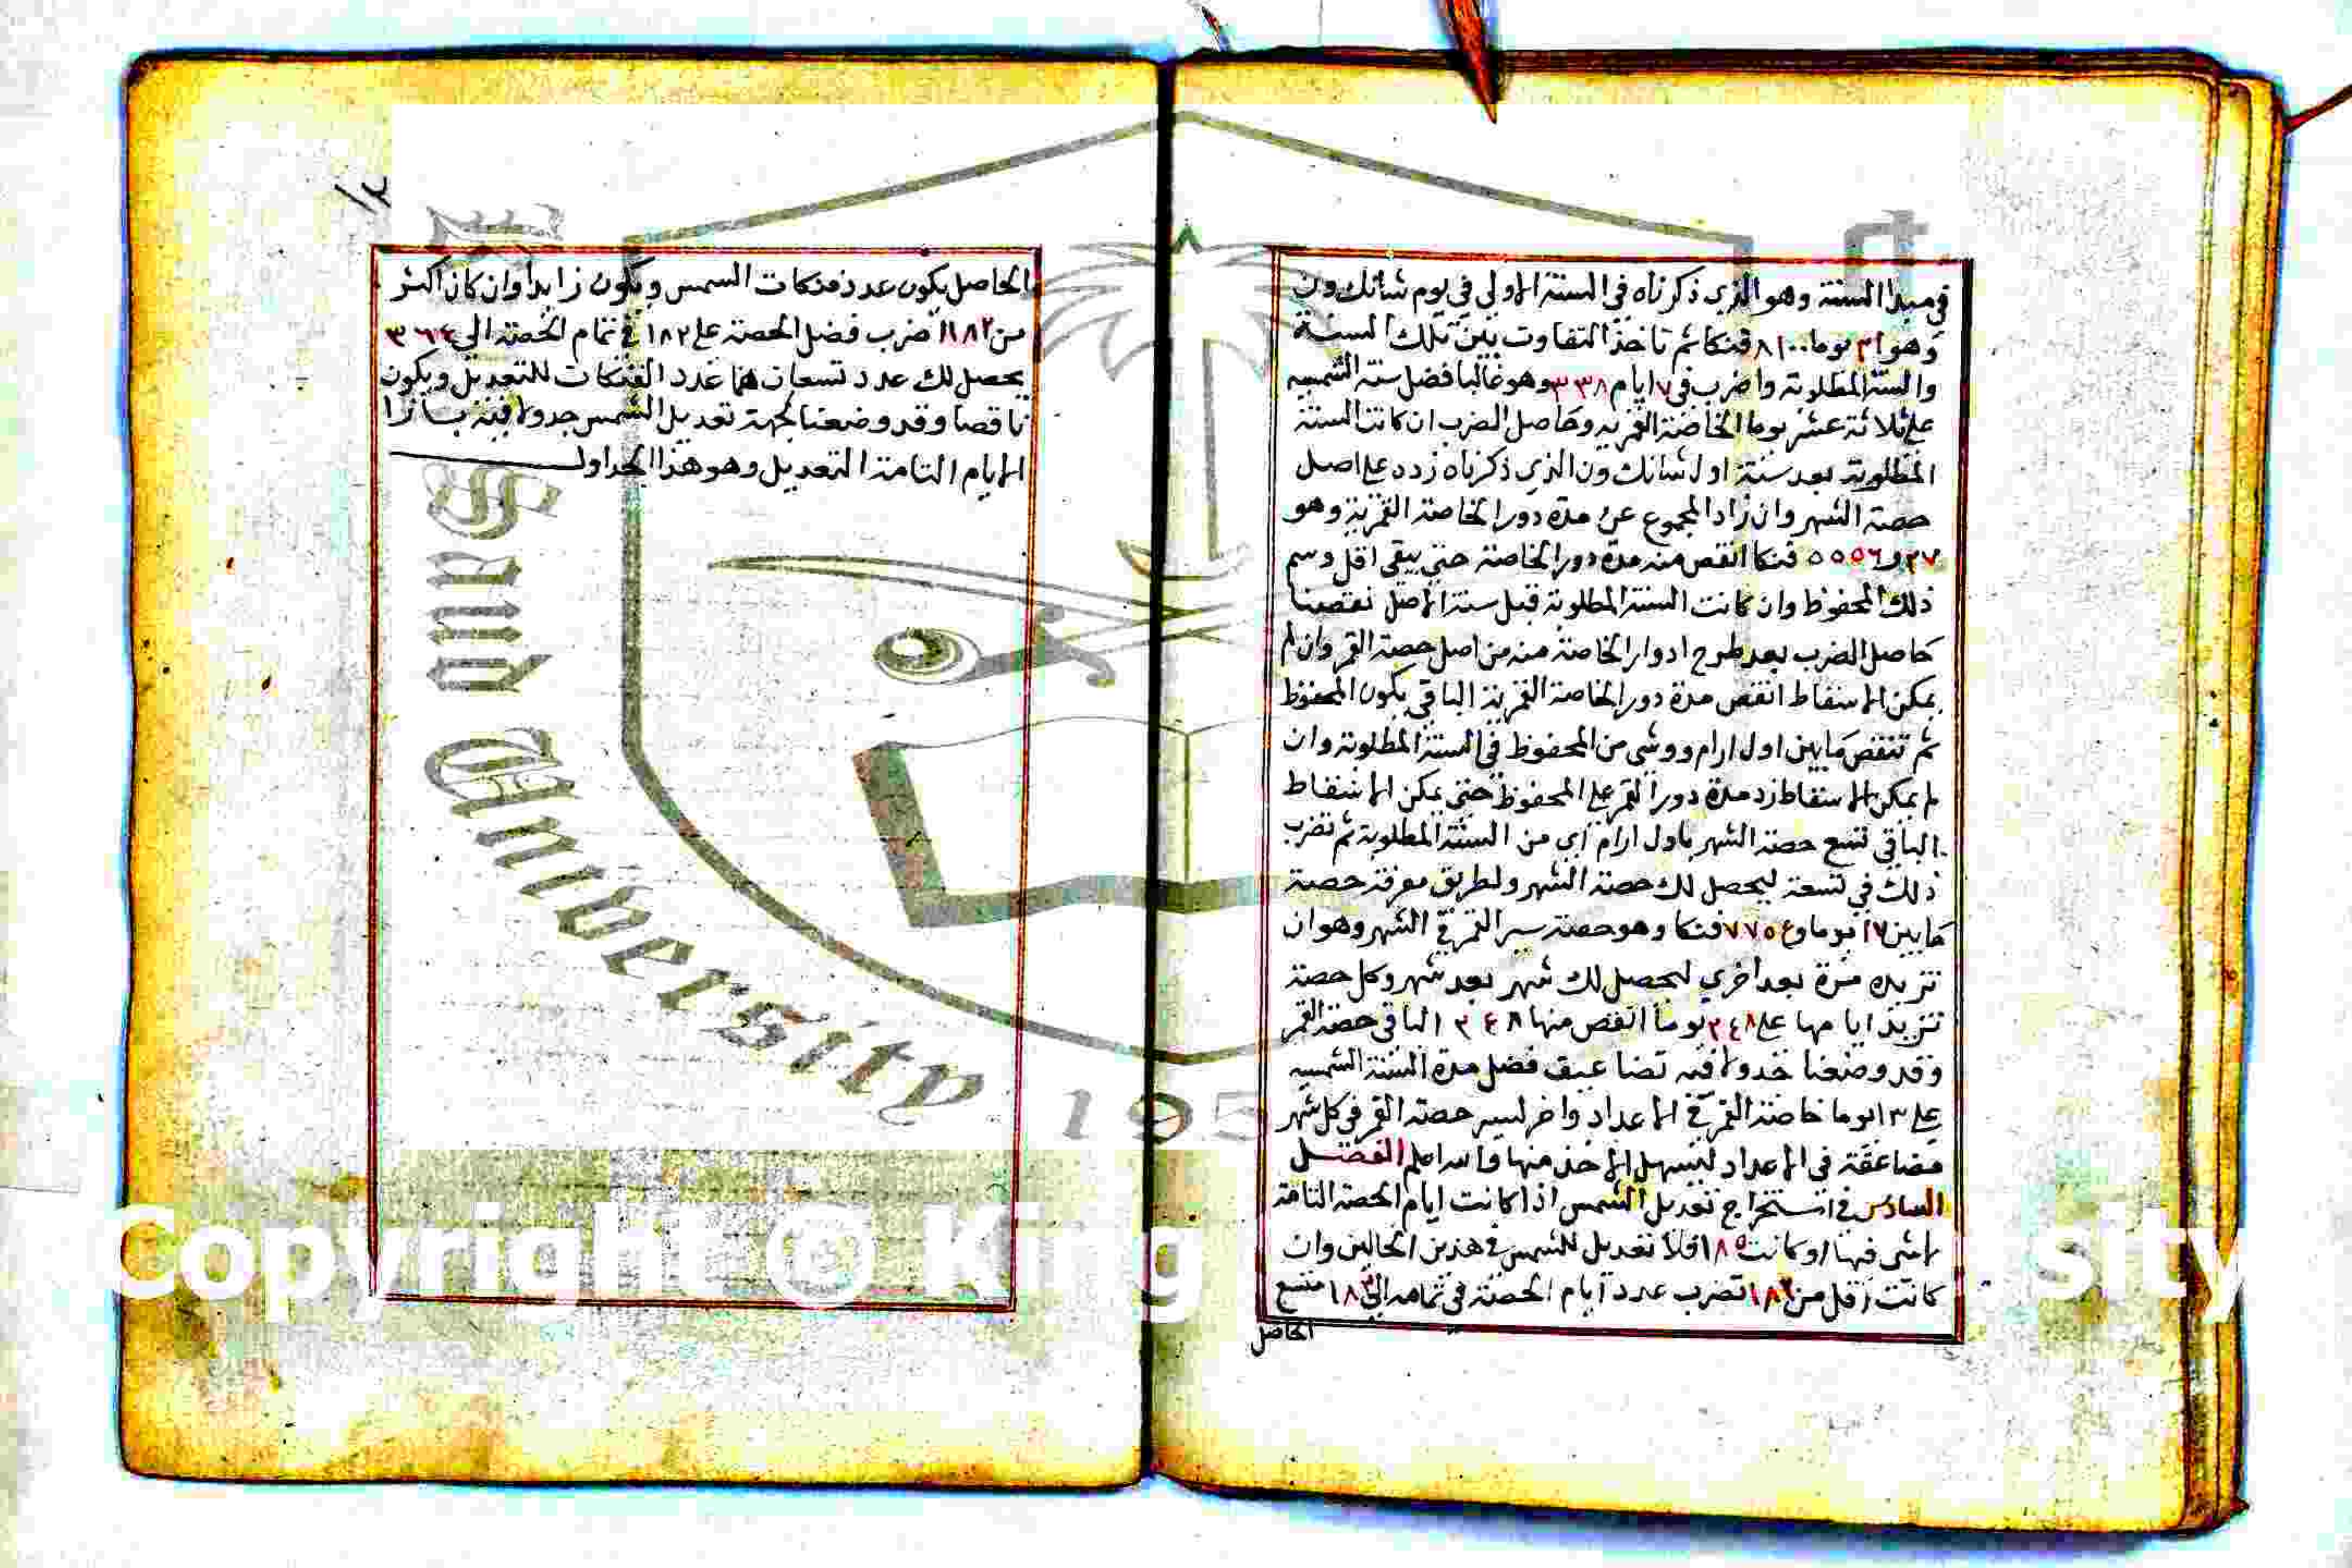 في مبدا السنة وهو الذي ذكرناه في السنة الاولي في يوم شانك ون
وهو ٢١ يوما ٨١٠٠ فنكا ثم تاخذ التفاوت بين تلك السنة
والسنة المطلوبة واضرب في ٧ ايام ٣٣٨ وهو غالبا فضل سنة الشمسيه
علي ثلاثة عشر يوما الخاصة القمريه وحاصل الضرب ان كانت السنة
المطلوبة بعد سنة اول شانك ون الذي ذكرناه زده علي اصل
حصة الشهر وان زاد المجموع عن مدة دور الخاصة القمرية وهو
٢٧ و ٥٥٥٦ فنكا انقص منه مدة دور الخاصة حتي يبقي اقل وسم
ذلك المحفوظ وان كانت السنة المطلوبة قبل سنة الاصل نقصنا
حاصل الضرب بعد طرح ادوار الخاصة منه من اصل حصة القمر وان لم
يمكن الاسقاط انقص مدة دور الخاصة القمرية الباقي يكون المحفوظ
ثم تنقص مابين اول ارام ووشي من المحفوظ في السنة المطلوبة وان
لم يمكن الاسقاط زد مدة دور القمر علي المحفوظ حتي يمكن الاسقاط
الباقي تسع حصة الشهر باول ارام اي من السنة المطلوبة ثم تضرب
ذلك في تسعة ليحصل لك حصة الشهر ولطريق معرفة حصة
مابين ١٧ يوما و ٧٧٥٤ فنكا وهو حصة سير القمر في الشهر وهو ان
تزيده مرة بعد اخري ليحصل لك شهر بعد شهر وكل حصة
تزيد ايامها علي ٢٤٨ يوما انقص منها ٢٤٨ الباقي حصة القمر
وقد وضعنا جدولا فيه تضاعيف فضل مدة السنة الشمسيه
علي ١٣ يوما خاصة القمر في الاعداد واخر لسير حصة القمر في كل شهر
مضاعفة في الاعداد ليسهل الاخذ منها والله اعلم الفصل
السادس في استخراج تعديل الشمس اذا كانت ايام الحصة التامة
لا شي فيها او كانت ١٨٥ فلا تعديل للشمس في هذين الحالين وان
كانت اقل من ١٨٢ تضرب عدد ايام الحصة في تمامه الي ١٨٢ متسع
الحاصل
١٢
الحاصل يكون عدد فنكات الشمس ويكون زايدا وان كان اكثر
من ١٨٢ اضرب فضل الحصة علي ١٨٢ في تمام الحصة الي ٣٦٤
يحصل لك عدد تسعان هما عدد الفنكات للتعديل ويكون
ناقصا وقد وضعنا لجهة تعديل الشمس جدولا فيه بازا
الايام التامة التعديل وهو هذا الجداول
Saud University
195
Copyright © King
sity